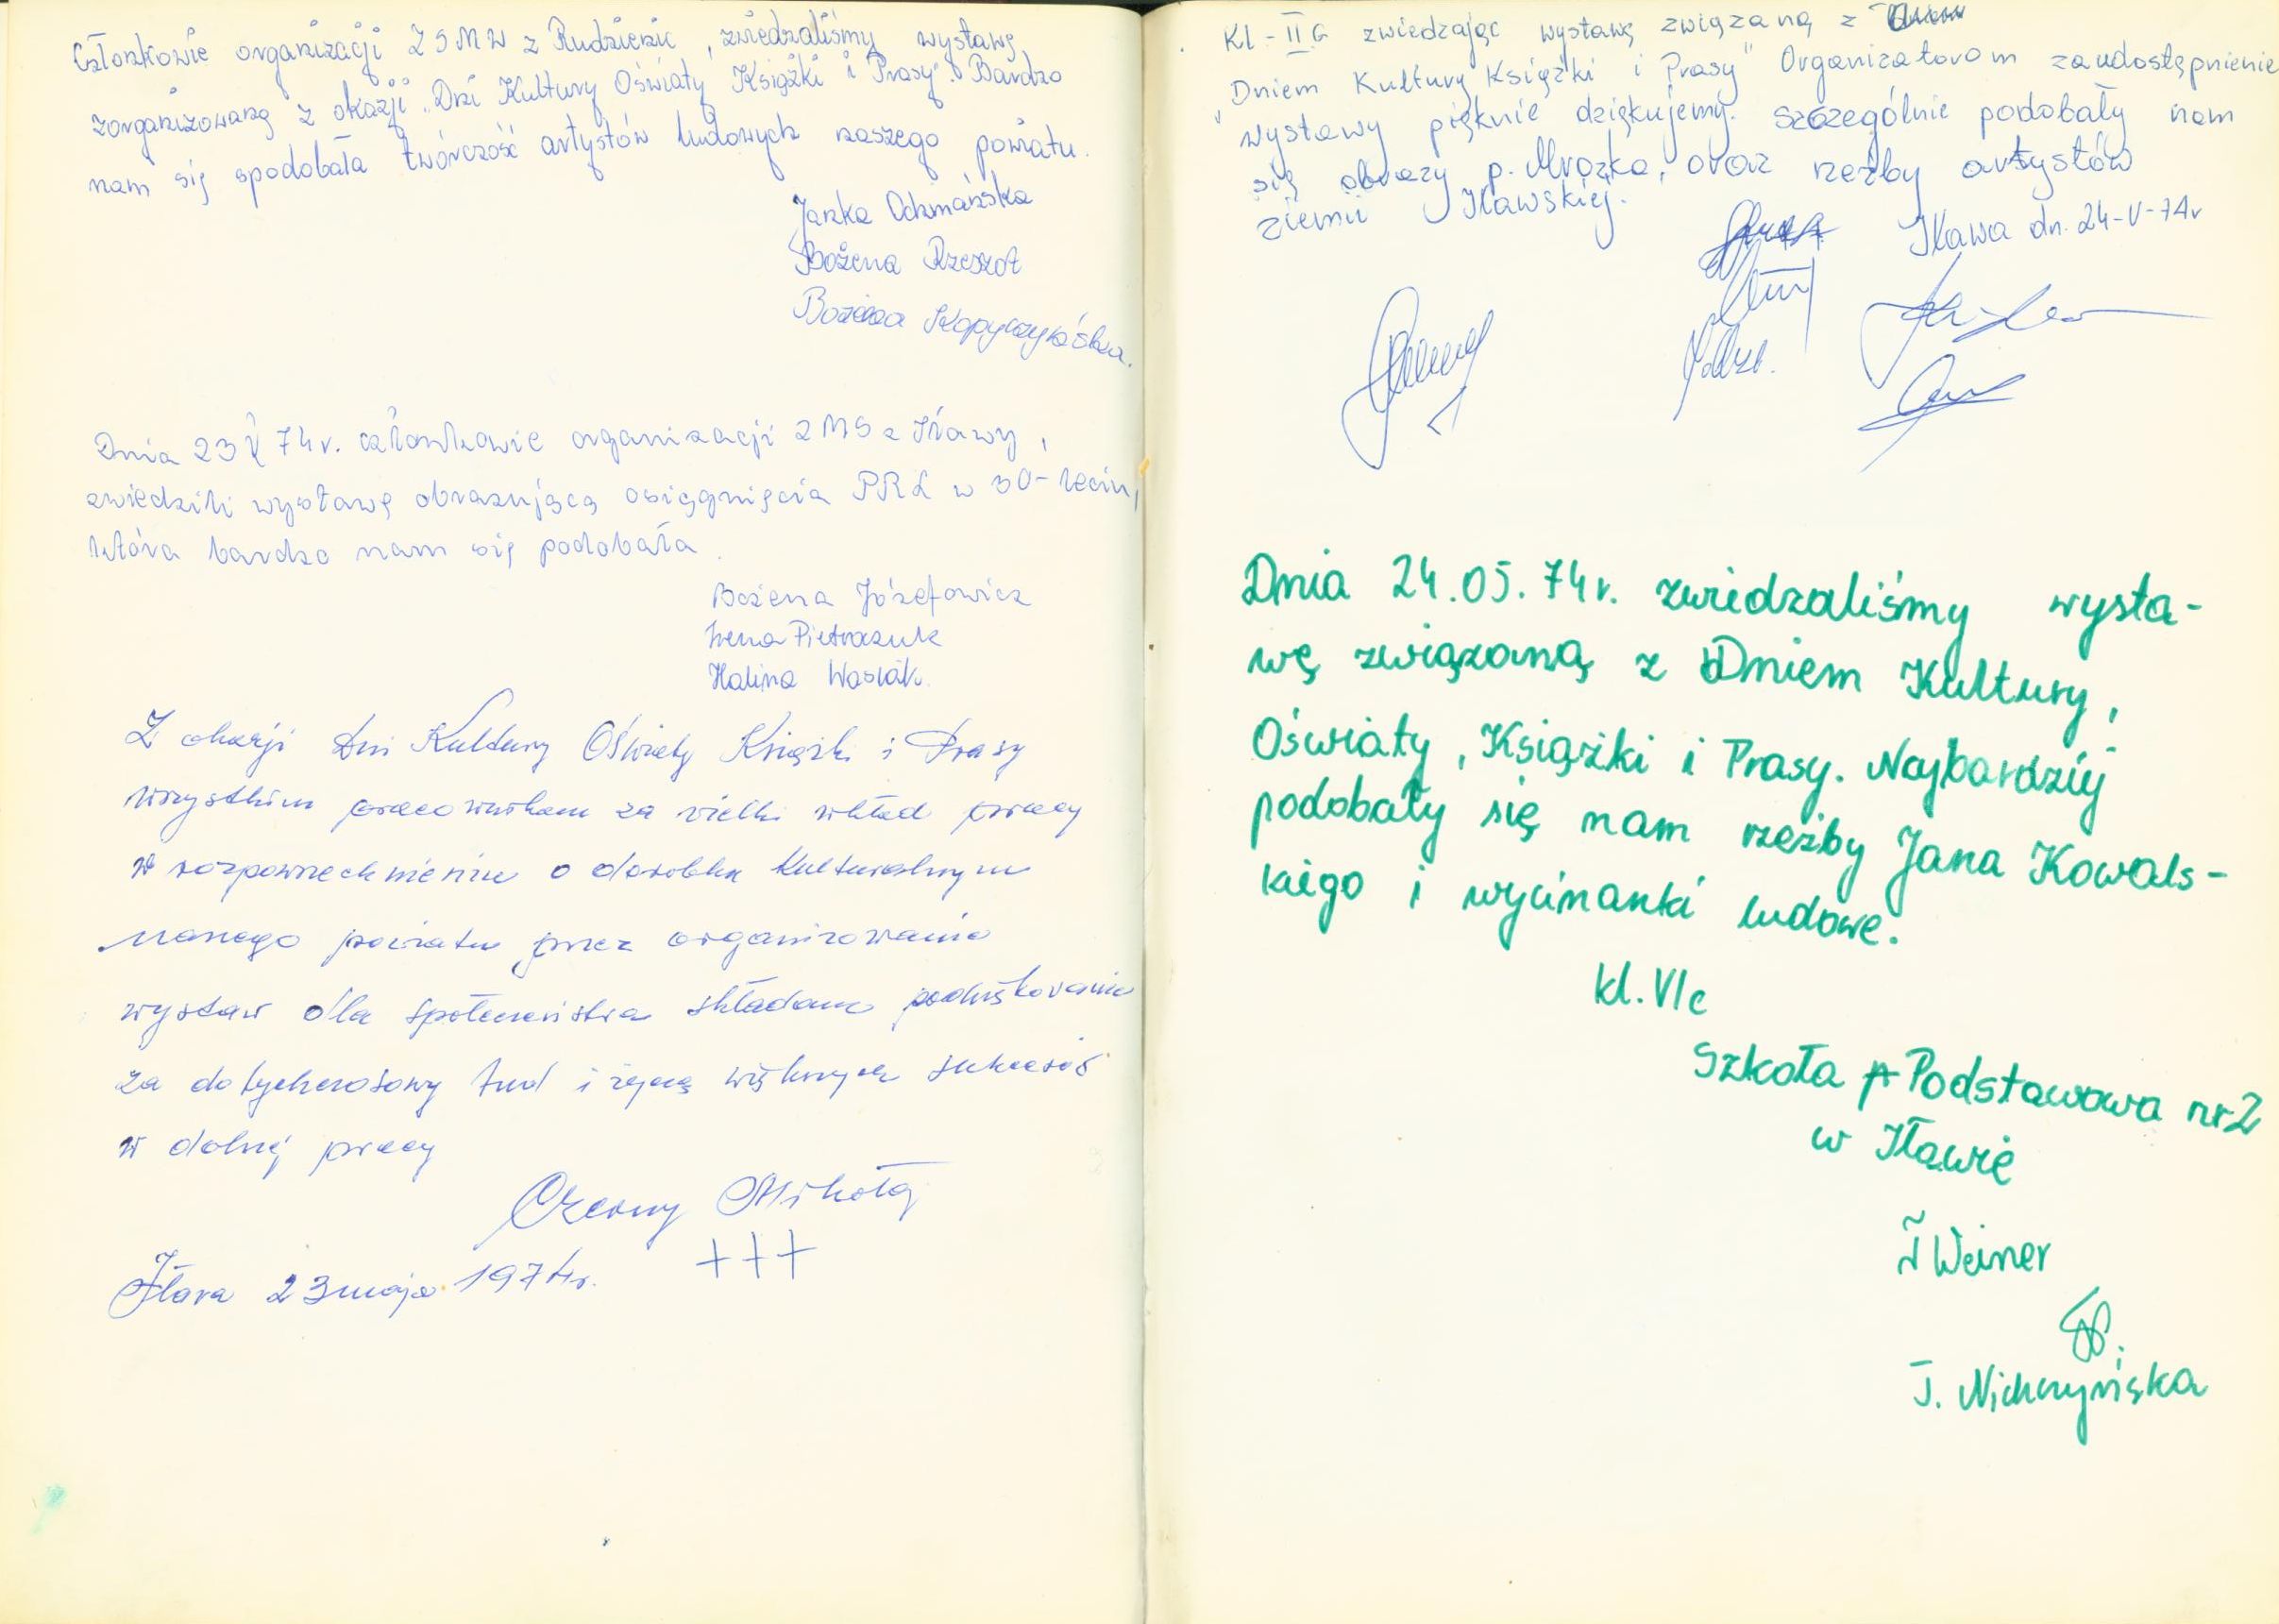 Członkowie organizacji ZSMW z Rudzienic, zwiedzaliśmy wystawę
zorganizowaną z okazji "Dni Kultury Oświaty Książki i Prasy". Bardzo
nam się spodobała twórczość artystów ludowych naszego powiatu.
Janka
Bożena Rzeszot
Bożena
Dnia 23 V 74r. członkowie organizacji ZMS z Iławy,
zwiedzili wystawę obrazującą osiągnięcia PRL w 30-leciu,
która bardzo nam się podobała.
Bożena Józefowicz
Irena Pietraszuk
Halina Wasiak.
Z okazji Dni Kultury Oświaty Książki i Prasy
wszystkim pracownikom za wielki wkład pracy
w rozpowszechnieniu o dorobku kulturalnym
naszego powiatu przez organizowanie
wystaw dla społeczeństwa składam podziękowanie
za dotychczasowy trud i życzę większych sukcesów
w dalszej pracy
Czerny Mikołaj
+++
Iława 23 maja 1974r.
Kl - II G zwiedzając wystawę związaną z
"Dniem Kultury Książki i Prasy" Organizatorom za udostępnienie
wystawy pięknie dziękujemy. Szczególnie podobały nam
się obrazy p. Mrozka, oraz rzeźby artystów
ziemii Iławskiej.
Iława dn. 24-V-74r
Dnia 24.05.74r. zwiedzaliśmy wysta-
wę związaną z Dniem Kultury,
Oświaty, Książki i Prasy. Najbardziej
podobały się nam rzeźby Jana Kowals-
kiego i wycinanki ludowe.
kl. VIc
Szkoła Podstawowa nr 2
w Iławie
I Weiner